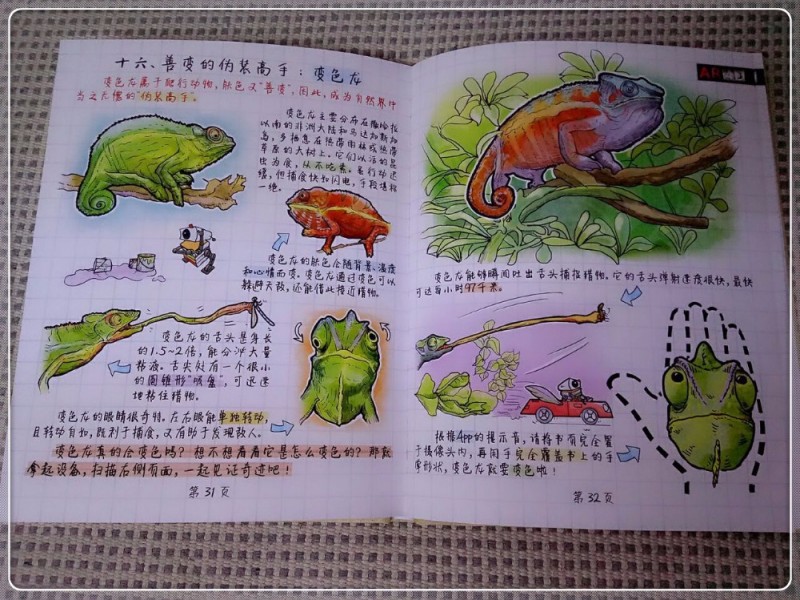 十六、善变的伪装高手：变色龙
变色龙属于爬行动物，肤色又"善变"，因此，成为自然界中
当之无愧的"伪装高手"。
变色龙主要分布在撒哈拉
以南的非洲大陆和马达加斯加
岛，多栖息在热带雨林或热带
草原的大树上。它们以活的昆
虫为食，从不吃素。虽行动迟
缓，但捕食快如闪电，手段堪称
一绝。
变色龙的肤色会随背景、温度
和心情而变。变色龙通过变色可以
躲避天敌，还能借此接近猎物。
变色龙的舌头是身长
的1.5~2倍，能分泌大量
粘液。舌尖处有一个很小
的圆锥形"吸盘"，可迅速
地移住猎物。
变色龙的眼睛很奇特。左右眼能单独转动，
且转动自如，既利于捕食，又有助于发现敌人。
变色龙真的会变色吗？想不想看看它是怎么变色的？那就
拿起设备，扫描右侧页面，一起见证奇迹吧！
第31页
变色龙能够瞬间吐出舌头捕捉猎物。它的舌头弹射速度很快，最快
可达每小时97千米。
根据App的提示音，请将书页完全置
于摄像头内，再用手完全覆盖书上的手
掌形状，变色龙就要变色啦！
第32页